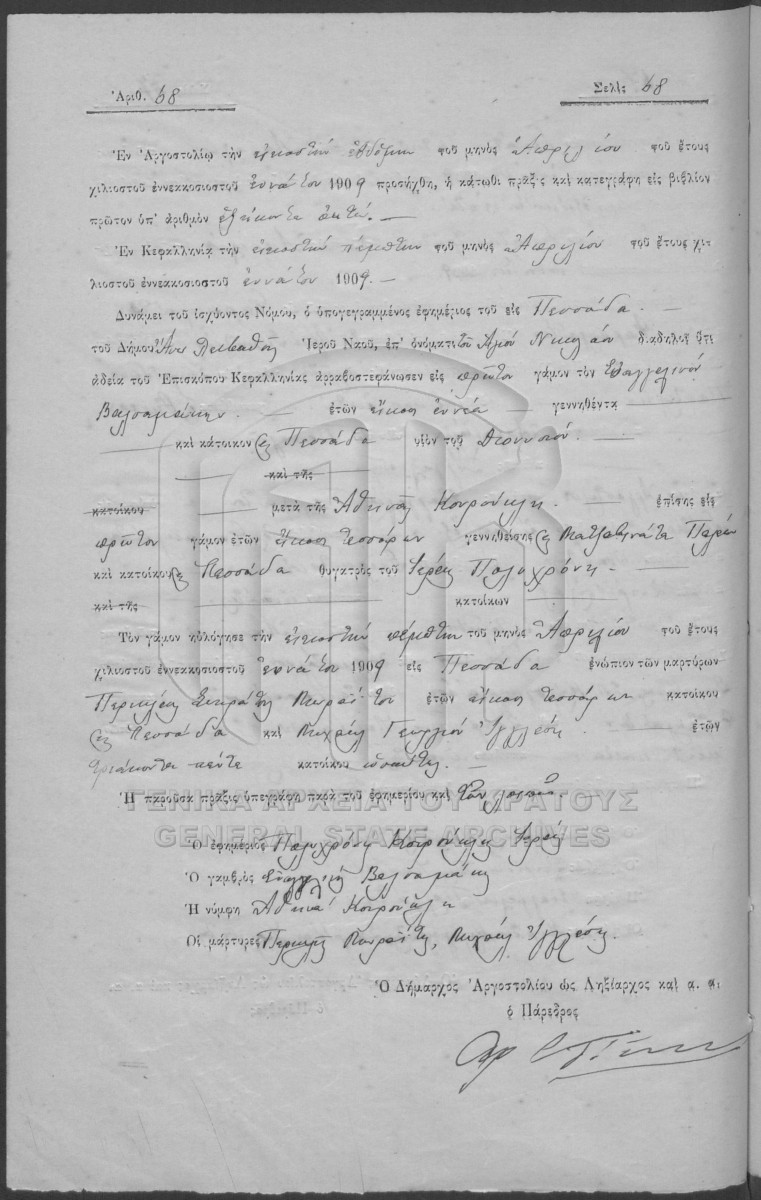 Ἀριθ. 68
Σελὶς 68
Ἐν Ἀργοστολίῳ τὴν εἰκοστὴν ἑβδόμην τοῦ μηνὸς Ἀπριλίου τοῦ ἔτους
χιλιοστοῦ ἐννεακοσιοστοῦ ἐννάτου 1909 προσήχθη, ἡ κάτωθι πρᾶξις καὶ κατεγράφη εἰς βιβλίον
πρῶτον ὑπ' ἀριθμὸν ἑξήκοντα ὀκτώ. —
Ἐν Κεφαλληνίᾳ τὴν εἰκοστὴν πέμπτην τοῦ μηνὸς Ἀπριλίου τοῦ ἔτους χι-
λιοστοῦ ἐννεακοσιοστοῦ ἐννάτου 1909. —
Δυνάμει τοῦ ἰσχύοντος Νόμου, ὁ ὑπογεγραμμένος ἐφημέριος τοῦ εἰς Πεσσάδα. —
τοῦ Δήμου Ἱεροῦ Ναοῦ, ἐπ' ὀνόματι τοῦ Ἁγίου Νικολάου διαδηλοῖ ὅτι
ἀδείᾳ τοῦ Ἐπισκόπου Κεφαλληνίας ἀρραβοστεφάνωσεν εἰς πρῶτον γάμον τὸν Εὐαγγελινὸν
Βαλσαμάκην. — ἐτῶν εἴκοσι ἐννέα — γεννηθέντα —
— καὶ κάτοικον Πεσσάδα υἱὸν τοῦ Διονυσίου. —
— καὶ τῆς
κατοίκου — μετὰ τῆς Ἀθηνᾶς Κουρούκλη. — ἐπίσης εἰς
πρῶτον γάμον ἐτῶν εἴκοσι τεσσάρων γεννηθείσης
καὶ κατοίκου Πεσσάδα θυγατρὸς τοῦ Ἱερέως Πολυχρόνη. —
καὶ τῆς — κατοίκων —
Τὸν γάμον ηὐλόγησε τὴν εἰκοστὴν πέμπτην τοῦ μηνὸς Ἀπριλίου τοῦ ἔτους
χιλιοστοῦ ἐννεακοσιοστοῦ ἐννάτου 1909 εἰς Πεσσάδα ἐνώπιον τῶν μαρτύρων
Περικλέα ἐτῶν εἴκοσι τεσσάρων κατοίκου
Πεσσάδα καὶ Μιχαὴλ Γεωργίου — ἐτῶν
τριάκοντα πέντε κατοίκου —
Ἡ παροῦσα πρᾶξις ὑπεγράφη παρὰ τοῦ ἐφημερίου καὶ τῶν λοιπῶν
ΓΕΝΙΚΑ ΑΡΧΕΙΑ ΤΟΥ ΚΡΑΤΟΥΣ
GENERAL STATE ARCHIVES
Ὁ ἐφημέριος Πολυχρόνης Κουρούκλης Ἱερεύς
Ὁ γαμβρὸς Εὐαγγελινὸς Βαλσαμάκης
Ἡ νύμφη Ἀθηνᾶ Κουρούκλη
Οἱ μάρτυρες Περικλῆς Μιχαὴλ
Ὁ Δήμαρχος Ἀργοστολίου ὡς Ληξίαρχος καὶ α. α.
ὁ Πάρεδρος